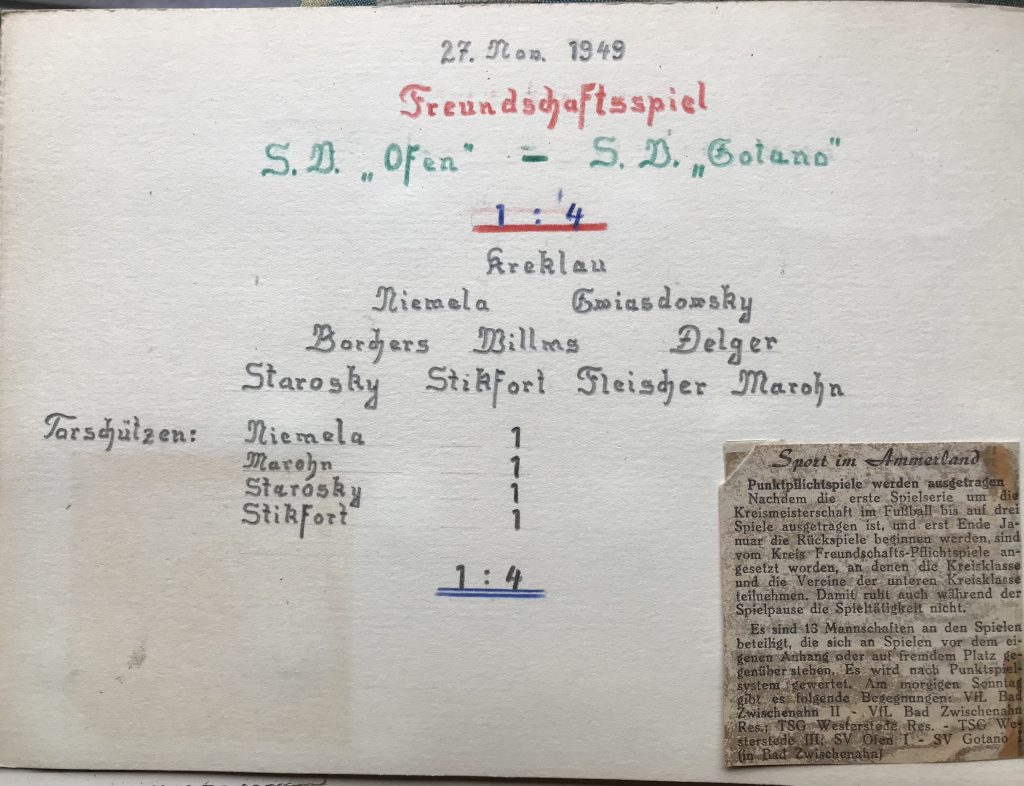 27. Nov. 1949
Freundschaftsspiel
S. V. „Ofen" – S. V. „Gotano"
1 : 4
Kreklau
Niemela Gwiasdowsky
Borchers Willms Delger
Starosky Stikfort Fleischer Marohn
Torschützen: Niemela 1
Marohn 1
Starosky 1
Stikfort 1
1 : 4
Sport im Ammerland
Punktpflichtspiele werden ausgetragen
Nachdem die erste Spielserie um die
Kreismeisterschaft im Fußball bis auf drei
Spiele ausgetragen ist, und erst Ende Ja-
nuar die Rückspiele beginnen werden, sind
vom Kreis Freundschafts-Pflichtspiele an-
gesetzt worden, an denen die Kreisklasse
und die Vereine der unteren Kreisklasse
teilnehmen. Damit ruht auch während der
Spielpause die Spieltätigkeit nicht.
Es sind 13 Mannschaften an den Spielen
beteiligt, die sich an Spielen vor dem ei-
genen Anhang oder auf fremdem Platz ge-
genüber stehen. Es wird nach Punktspiel-
system gewertet. Am morgigen Sonntag
gibt es folgende Begegnungen: VfL Bad
Zwischenahn II - VfL Bad Zwischenahn
Res.; TSG Westerstede Res. - TSG We-
sterstede III; SV Ofen I - SV Gotano
(in Bad Zwischenahn)